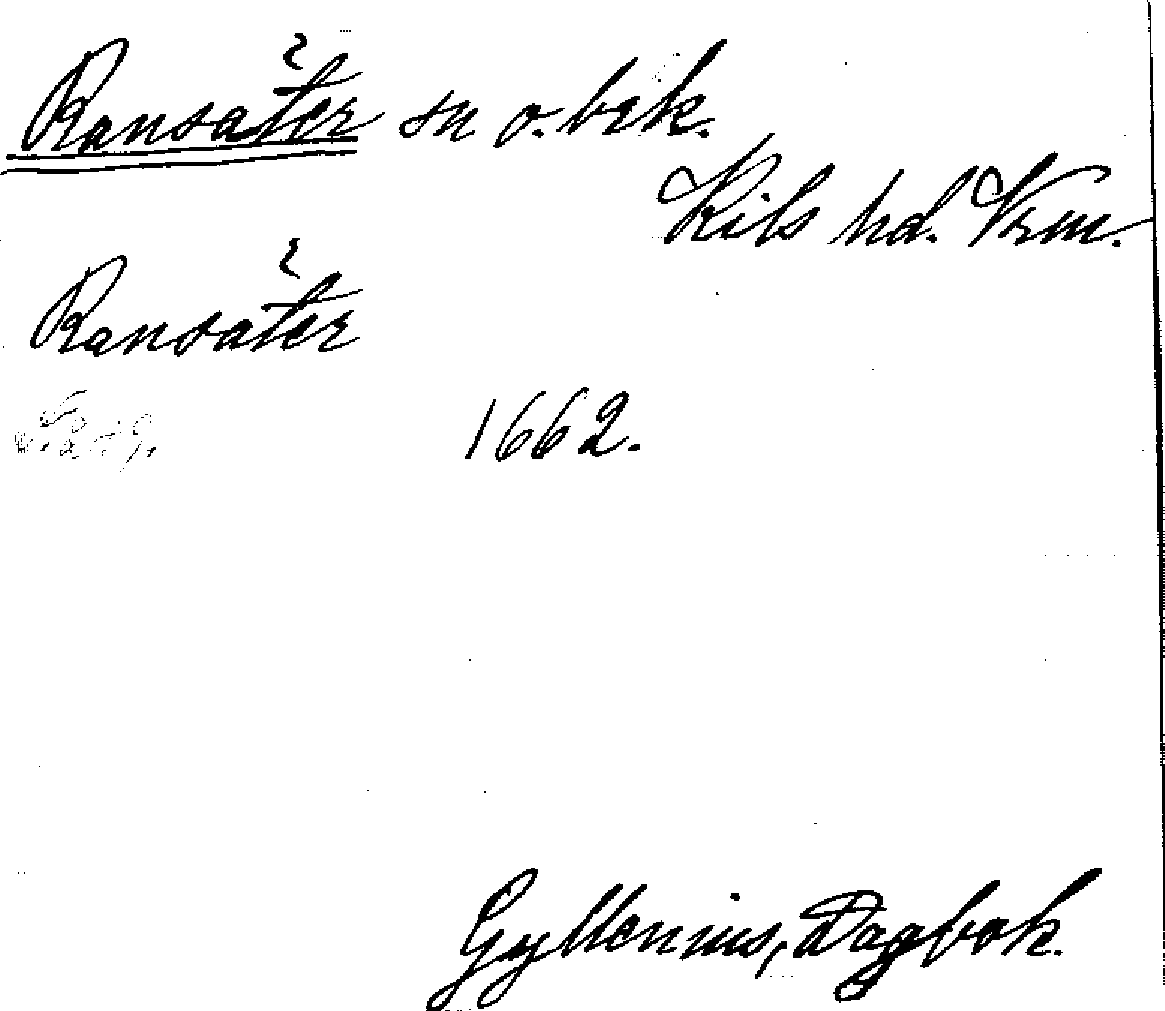 Ransäter sn o. brk.
Kils hd. Vrm.
Ransäter
1662.
Gyllenius, Dagbok.